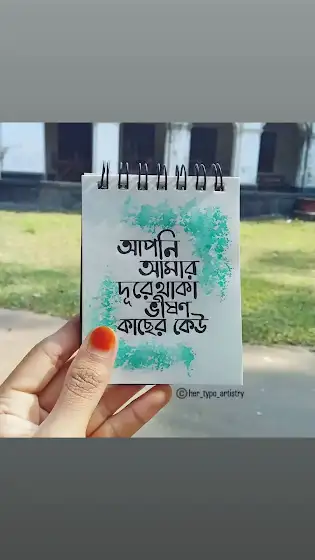 আপনি
আমার
দূরেথাকা
ভীষণ
কাছের কেউ
©her_typo_artistry